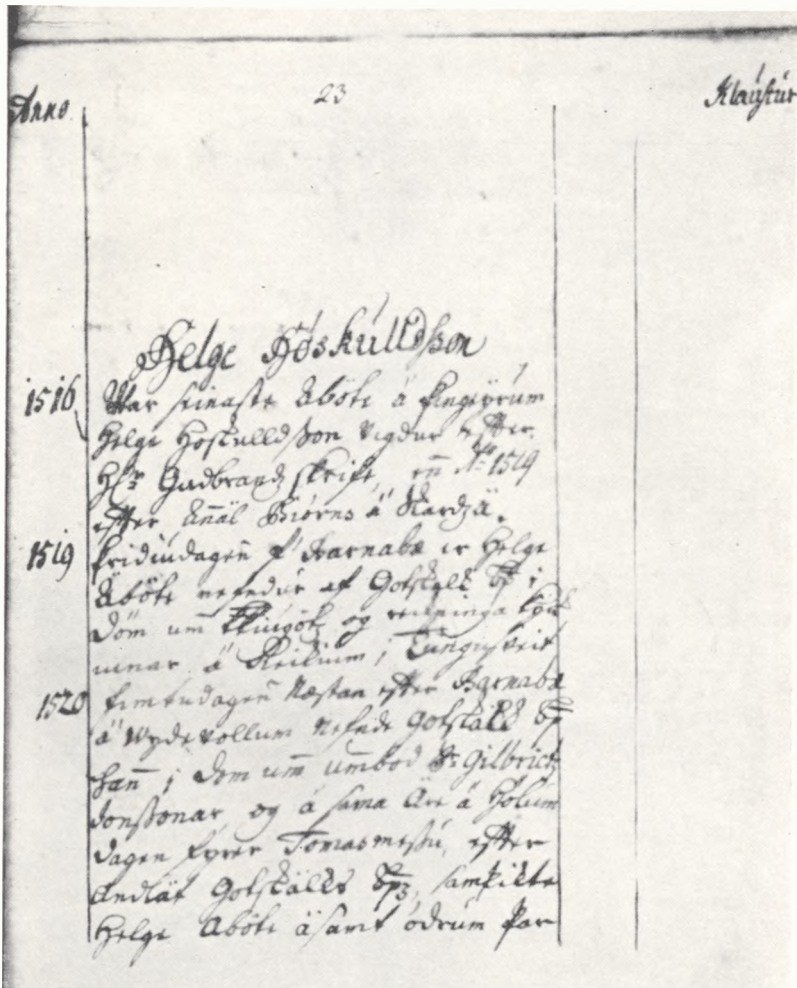 Anno.
23
Klaustur
Helge Høskulldsson
1516
War seinaste Aböte á þingeÿrum
Helge Høskulldsson vigdur effter
Hr Gudbrandz skrift, en Aö 1519
effter Anäl Biørns á Skardzä.
1519
fridiudagen f Barnabæ er Helge
Aböte nefndur af Gotskalk Bp i
döm um og
á Reikium i Tungusveit
1520
fimtudagen Næstan effter Barnabæ
á Wydevollum Nefnde Gotskalk Bp
hann i dom umm umbod Sr Gilbrictz
Jonssonar, og á sama Are á Hölum
dagen fyrer Tomasmessu, effter
Andlät Gotskälks Bps, samþickte
Helge Aböte äsamt ödrum þar